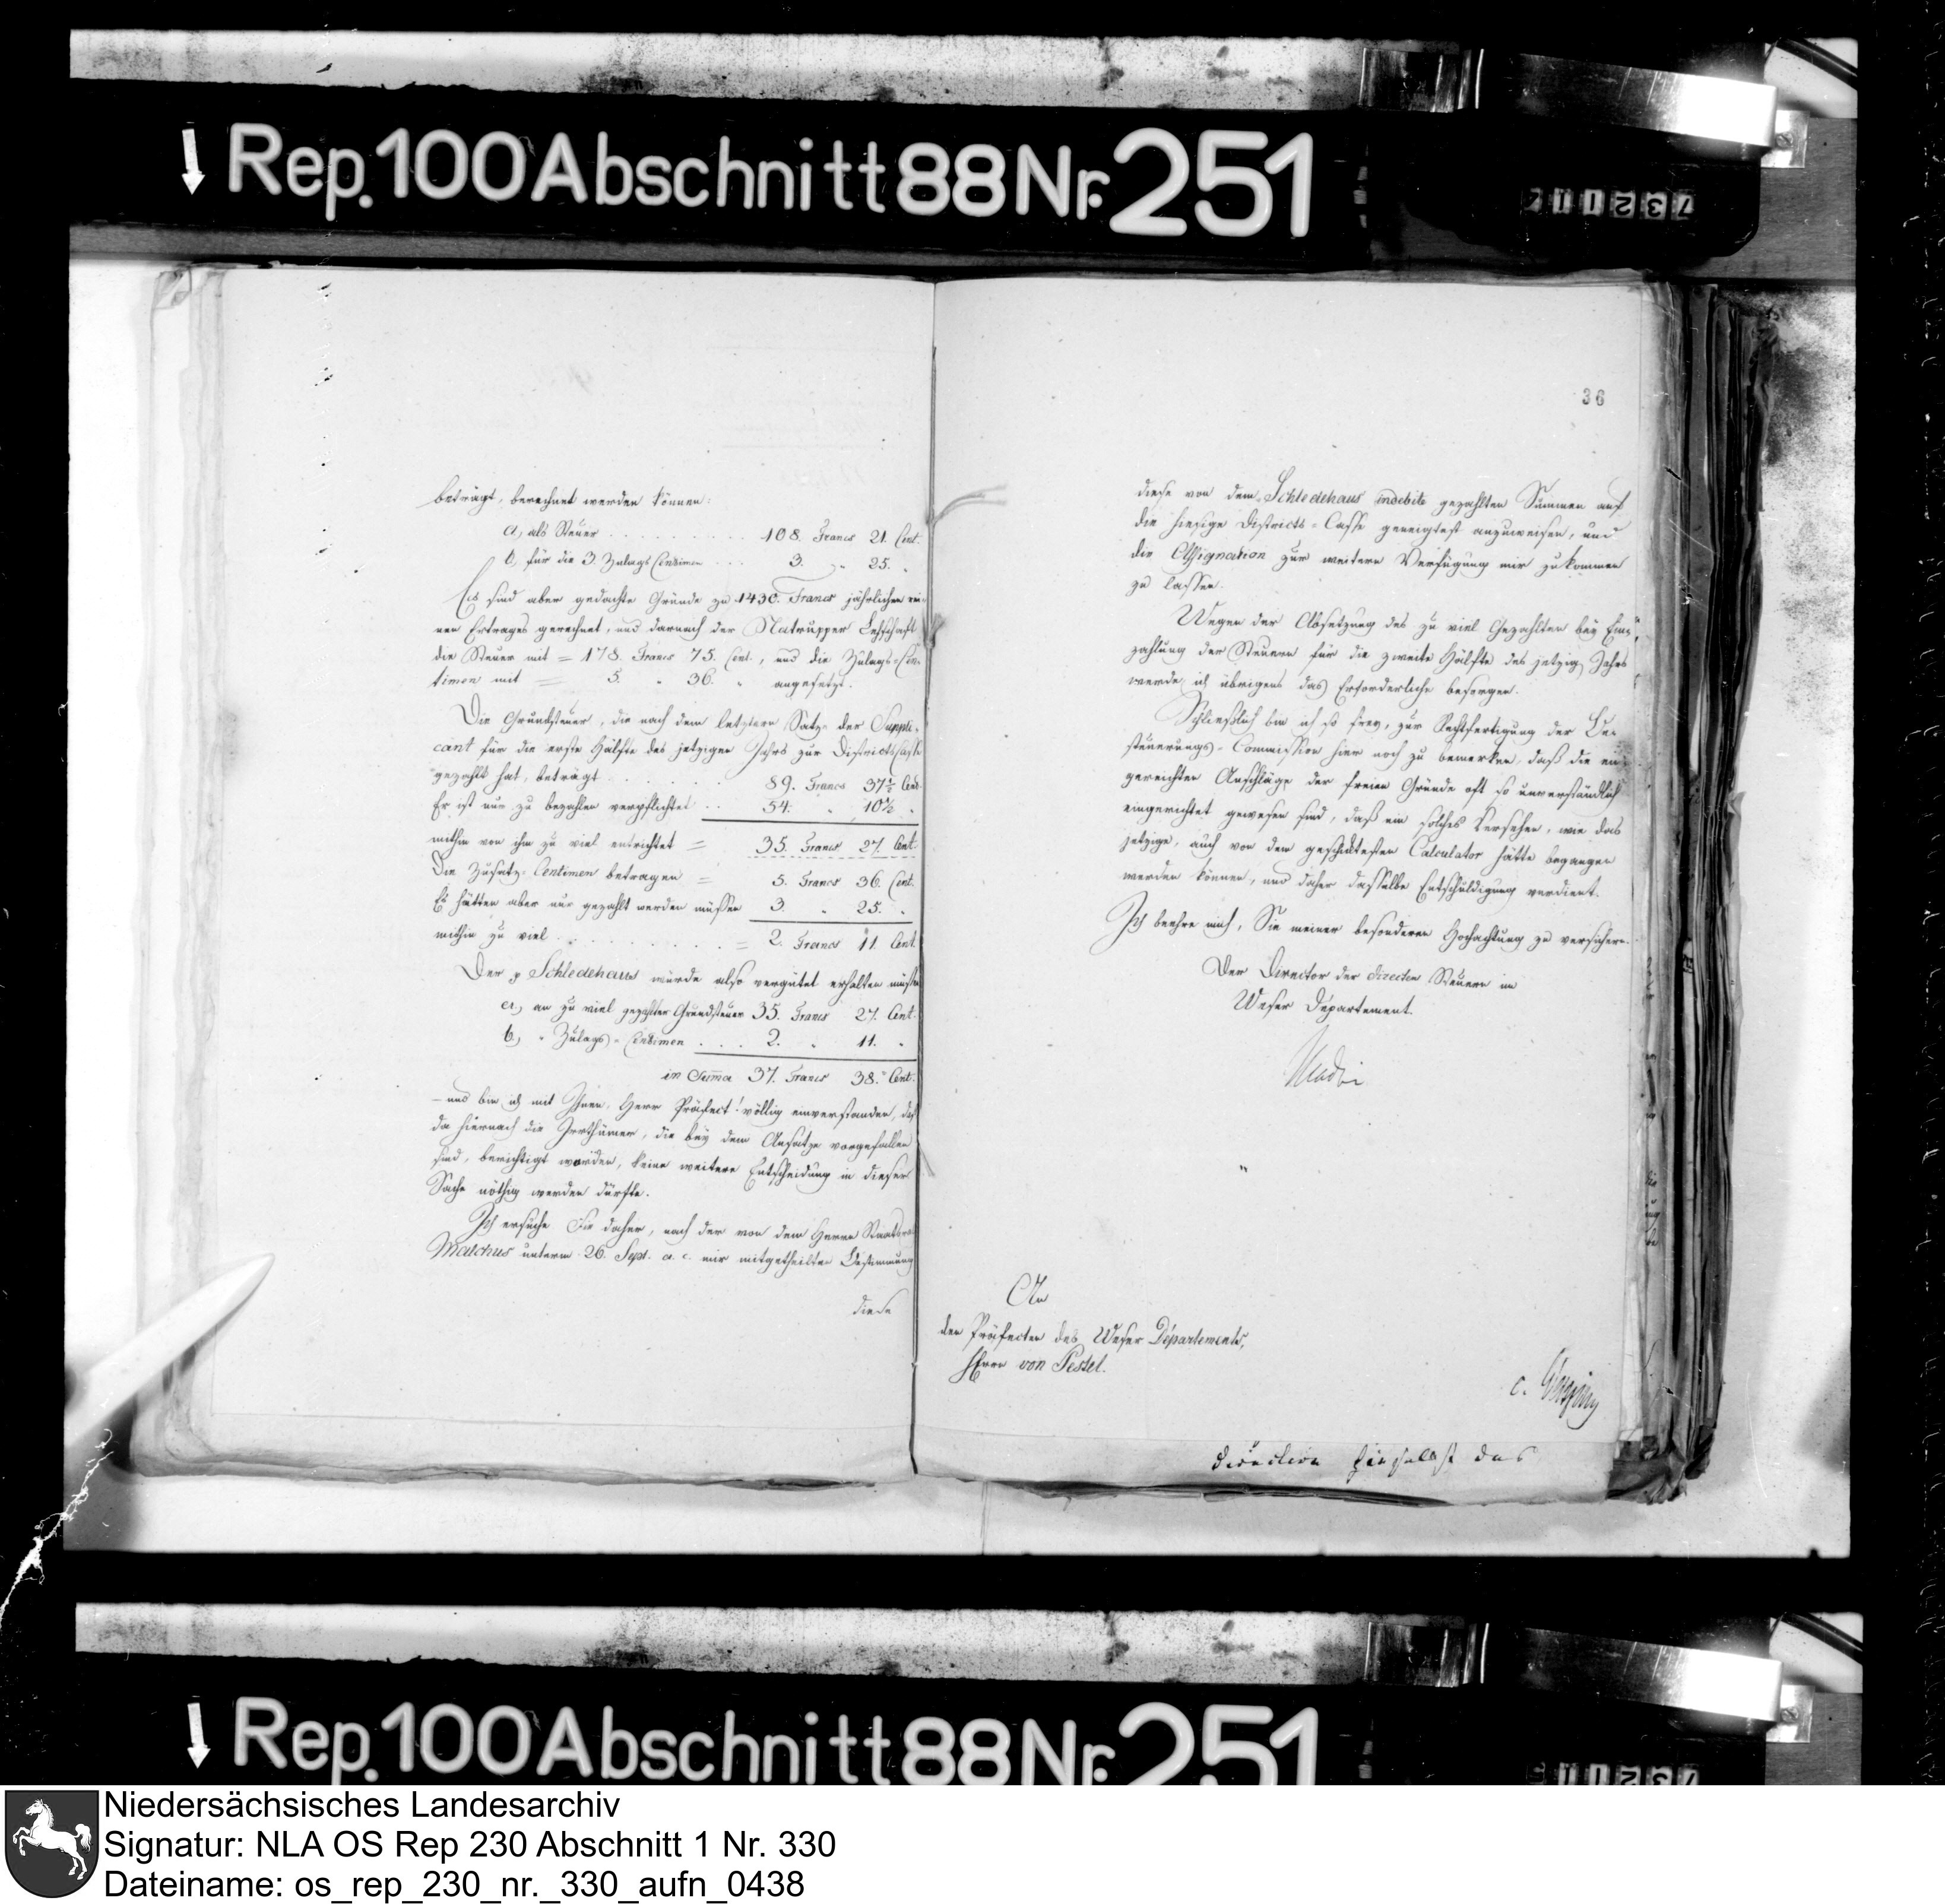 Rep. 100 Abschnitt 88 Nr. 251
beträgt, berechnet werden können:
a, als Steuer . . . . . . . . . . 108. Francs 21. Cent.
b, für die 3. Zulags Centimen . . . 3. " 25. "
Es sind aber gedachte Gründe zu 1430. Francs jährlichen rei-
nen Ertrages gerechnet, und darnach der Natrupper Leschaft
die Steuer mit = 178. Francs 75. Cent., und die Zulags-Cen-
timen mit = 5. " 36. " angesetzt.
Die Grundsteuer, die nach dem letztern Satze der Suppli-
cant für die erste Hälfte des jetzigen Jahrs zur Districts Casse
gezahlt hat, beträgt . . . . . . 89. Francs 37½ Cent.
Er ist nur zu bezahlen verpflichtet . . 54. " 10½ "
mithin von ihm zu viel entrichtet = 35. Francs 27. Cent.
Die Zusatz-Centimen betragen = 5. Francs 36. Cent.
Es hätten aber nur gezahlt werden müssen 3. " 25. "
mithin zu viel . . . . . . . . . = 2. Francs 11. Cent.
Der p Schledehaus würde also vergütet erhalten müssen
a, an zu viel gezahlter Grundsteuer 35. Francs 27. Cent.
b, " Zulags-Centimen . . . 2. " 11. "
in Summa 37. Francs 38. Cent.
– und bin ich mit Ihnen, Herr Präfect! völlig einverstanden, daß
da hiernach die Irrthümer, die bey dem Ansatze vorgefallen
sind, berichtigt worden, keine weitere Entscheidung in dieser
Sache nöthig werden dürfte.
Ich ersuche Sie daher, nach der von dem Herrn Staatsrath
Malchus unterm 26. Sept. a. c. mir mitgetheilten Bestimmung
diese
36
diese von dem Schledehaus indebite gezahlten Summen auf
die hiesige Districts-Casse geneigtest anzuweisen, und
die Assignation zur weitern Verfügung mir zukommen
zu lassen.
Wegen der Absetzung des zu viel Gezahlten bey Ein-
zahlung der Steuern für die zweite Hälfte des jetzig. Jahrs
werde ich übrigens das Erforderliche besorgen.
Schließlich bin ich so frey, zur Rechtfertigung der Be-
steuerungs-Commission hier noch zu bemerken, daß die ein-
gereichten Anschläge der freien Gründe oft so unverständlich
eingerichtet gewesen sind, daß ein solches Versehen, wie das
jetzige, auch von dem geschicktesten Calculator hätte begangen
werden können, und daher dasselbe Entschuldigung verdient.
Ich beehre mich, Sie meiner besonderen Hochachtung zu versichern.
Der Director der directen Steuern im
Weser Département.
An
den Präfecten des Weser Départements,
Herrn von Pestel.
direction hieselbst das
Rep. 100 Abschnitt 88 Nr. 251
Niedersächsisches Landesarchiv
Signatur: NLA OS Rep 230 Abschnitt 1 Nr. 330
Dateiname: os_rep_230_nr._330_aufn_0438